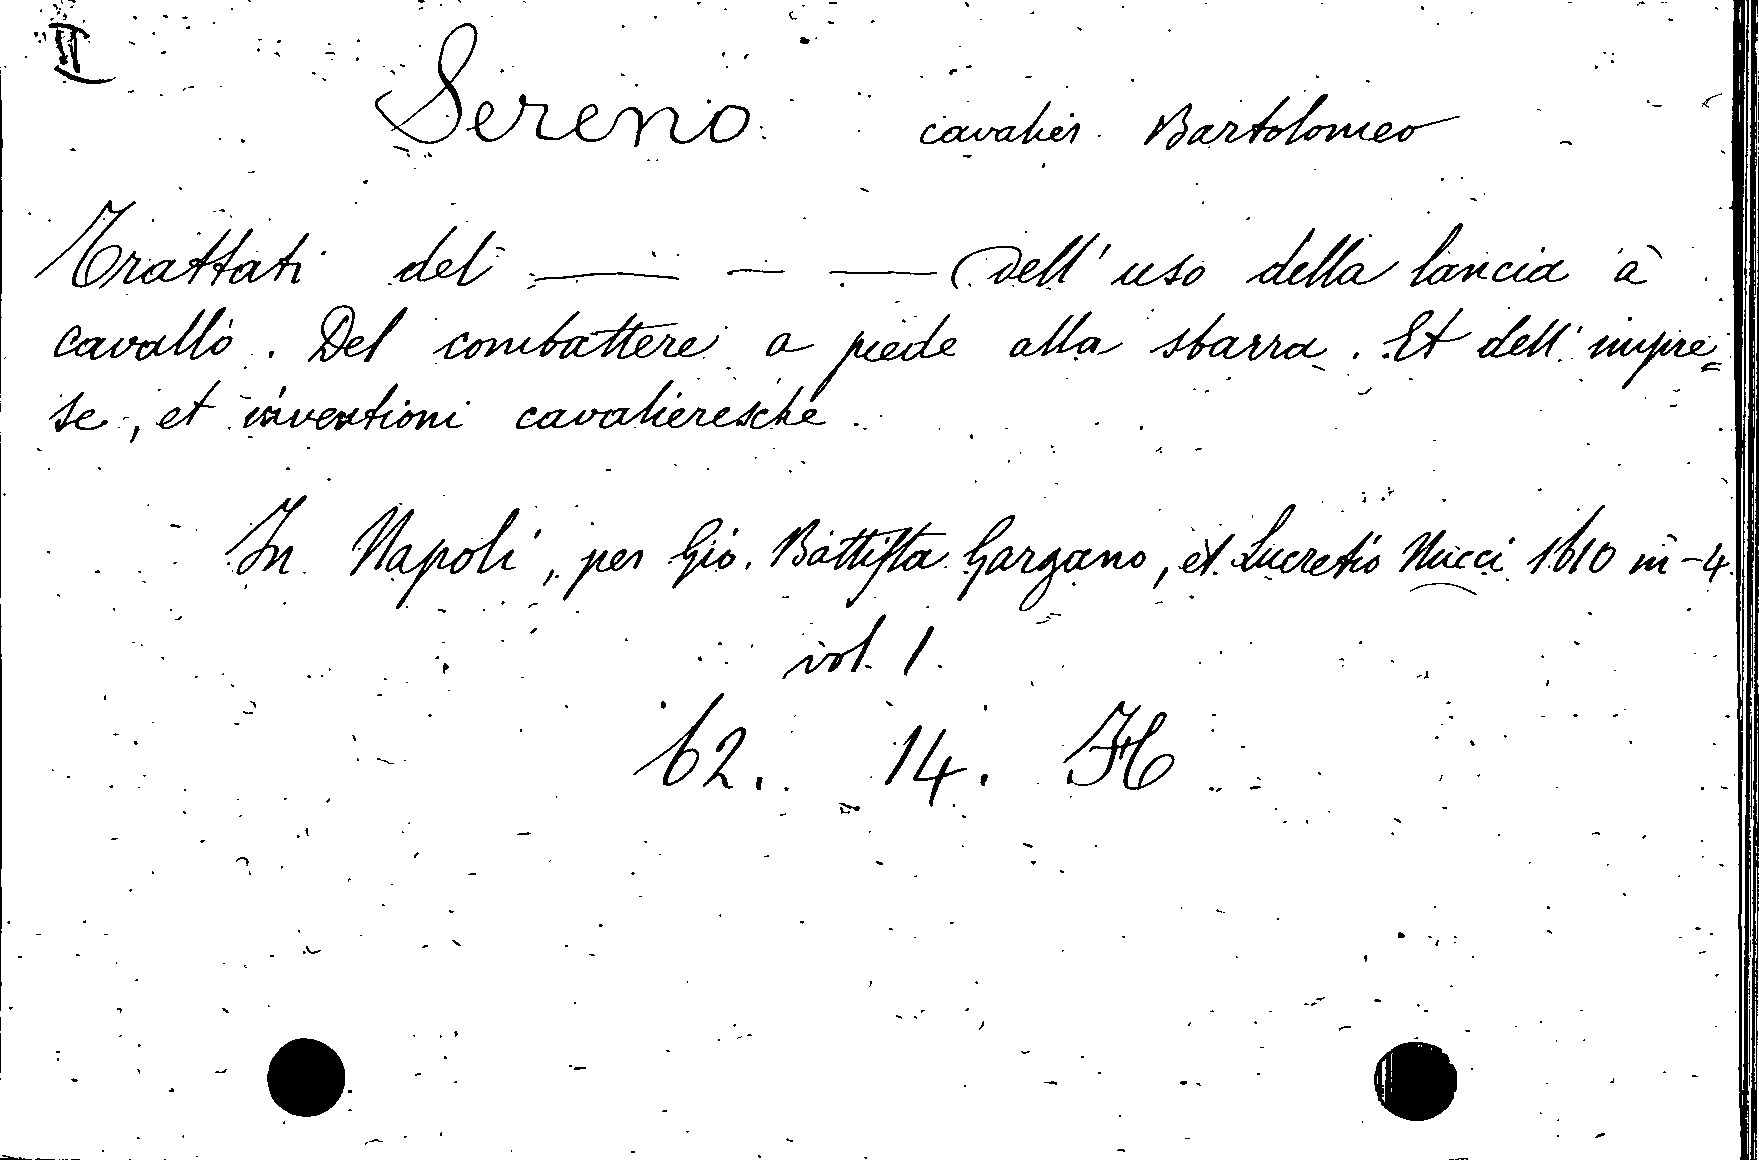 II
Sereno cavalier Bartolomeo
Trattati del ——— — ——— Dell' uso della lancia à
cavallo. Del combattere a piede alla sbarra. Et dell' impre=
se, et inventioni cavalieresche.
In Napoli, per Gio. Battista Gargano, et Lucretio Nucci 1610 in-4.
vol. 1.
62. 14. H